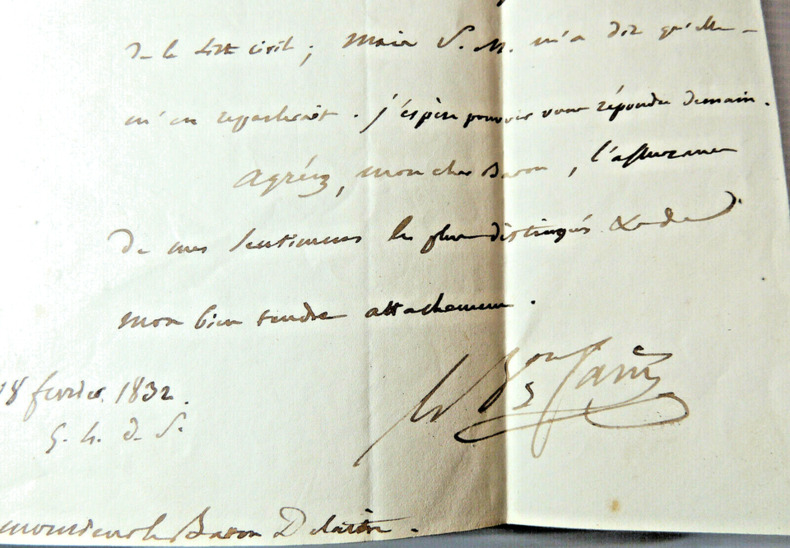 de la liste civile ; mais S. M. m'a dit qu'elle
m'en reparlerait. j'espère pouvoir vous répondre demain.
Agréez, mon cher Baron, l'assurance
de mes sentimens les plus distingués & de
mon bien tendre attachement.
18 fevrier 1832.
Le Bon
5. h. d. S.
monsieur le Baron Delaitre.